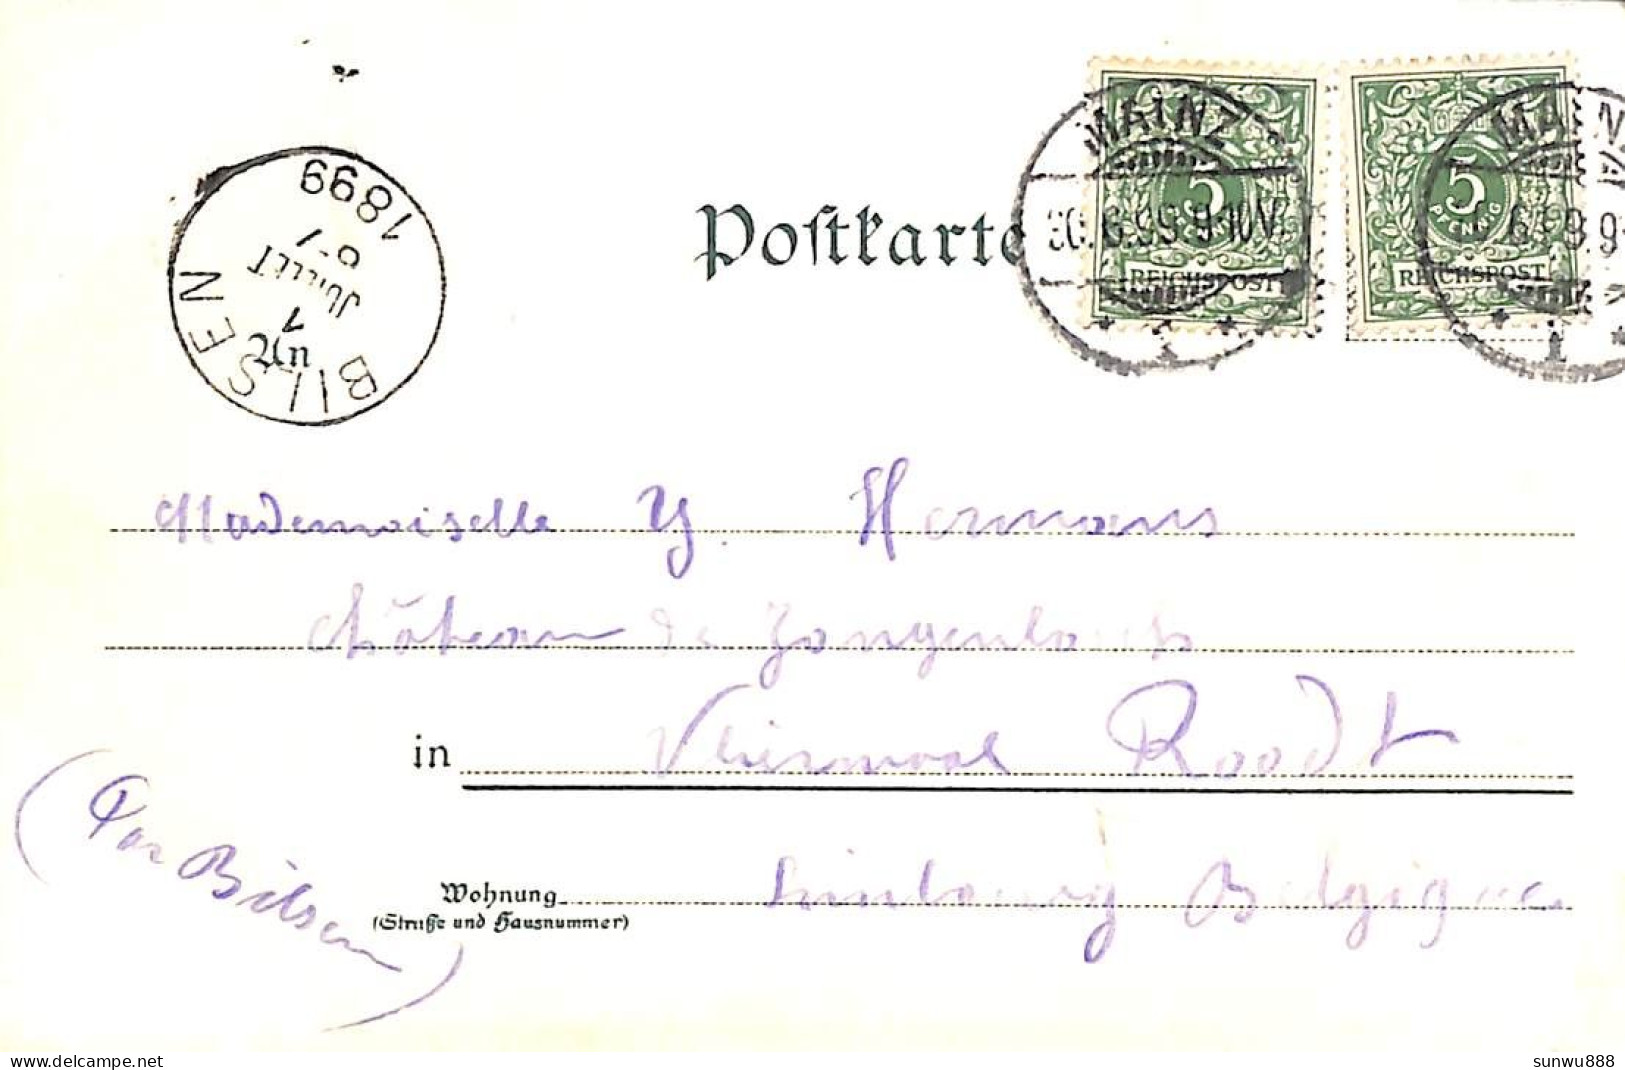 1899
6-7
JUILLET
7
An
BILSEN
Postkarte
MAINZ
30.6.99.9-10V.
1
5
PFENNIG
REICHSPOST
MAINZ
1
5
PFENNIG
REICHSPOST
Mademoiselle Y. Hermans
château de
in Vliermaal Roodt
(Par Bilsen)
Wohnung
Limbourg Belgique
(Straße und Hausnummer)
sunwu888